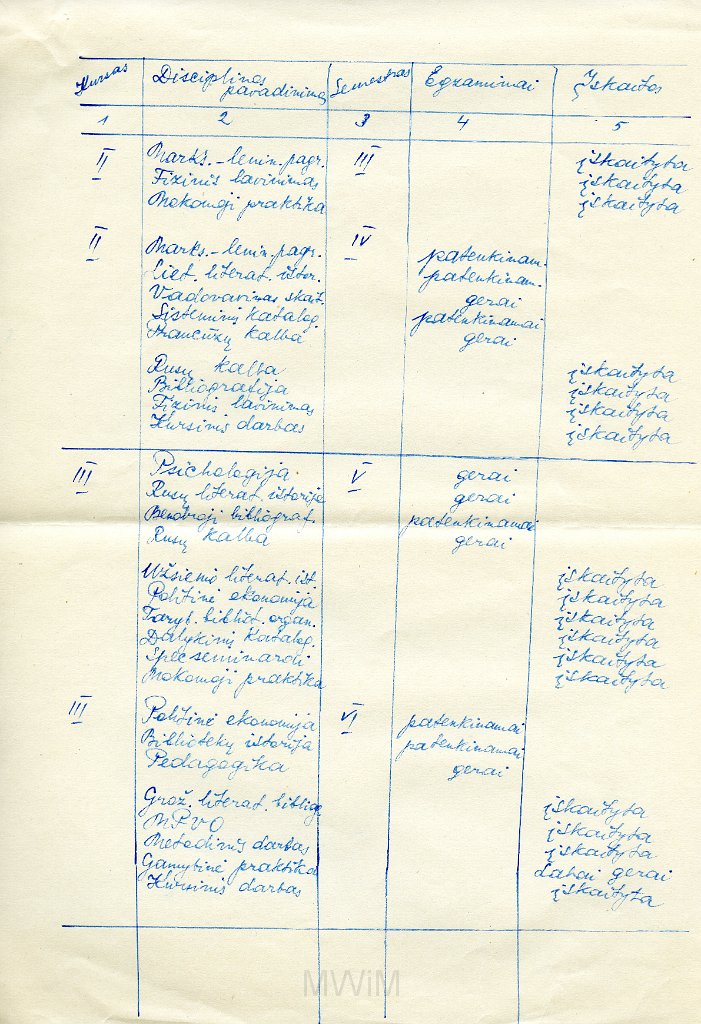 Kursas Disciplinos pavadinimas Semestras Egzaminai Įskaitos
1 2 3 4 5
II Marks.-lenin. pagr. III įskaityta
Fizinis lavinimas įskaityta
Mokomoji praktika įskaityta
II Marks.-lenin. pagr. IV patenkinam.
Liet. literat. istor. patenkinam.
Vadovavimas skait. gerai
Sisteminis katalog. patenkinamai
Prancūzų kalba gerai
Rusų kalba įskaityta
Bibliografija įskaityta
Fizinis lavinimas įskaityta
Kursinis darbas įskaityta
III Psichologija V gerai
Rusų literat. istorija gerai
Bendroji bibliograf. patenkinamai
Rusų kalba gerai
Užsienio literat. ist. įskaityta
Politinė ekonomija įskaityta
Taryb. bibliot. organ. įskaityta
Dalykinis katalog. įskaityta
Specseminarai įskaityta
Mokomoji praktika įskaityta
III Politinė ekonomija VI patenkinamai
Bibliotekų istorija patenkinamai
Pedagogika gerai
Grož. literat. bibliog. įskaityta
MPVO įskaityta
Metodinis darbas įskaityta
Gamybinė praktika Labai gerai
Kursinis darbas įskaityta
MWiM